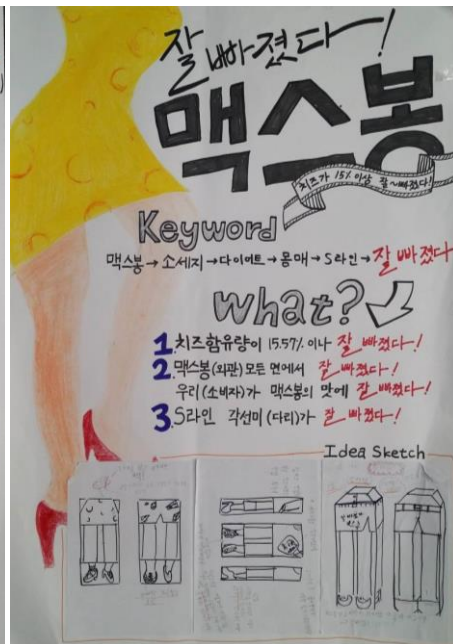 잘 빠졌다!
맥스봉
치즈가 15% 이상 잘~빠졌다!
Keyword
맥스봉→소세지→다이어트→몸매→S라인→잘 빠졌다
What?
1. 치즈함유량이 15.57% 이나 잘 빠졌다!
2. 맥스봉(외관) 모든 면에서 잘 빠졌다!
우리(소비자)가 맥스봉의 맛에 잘 빠졌다!
3. S라인 각선미(다리)가 잘 빠졌다!
Idea Sketch